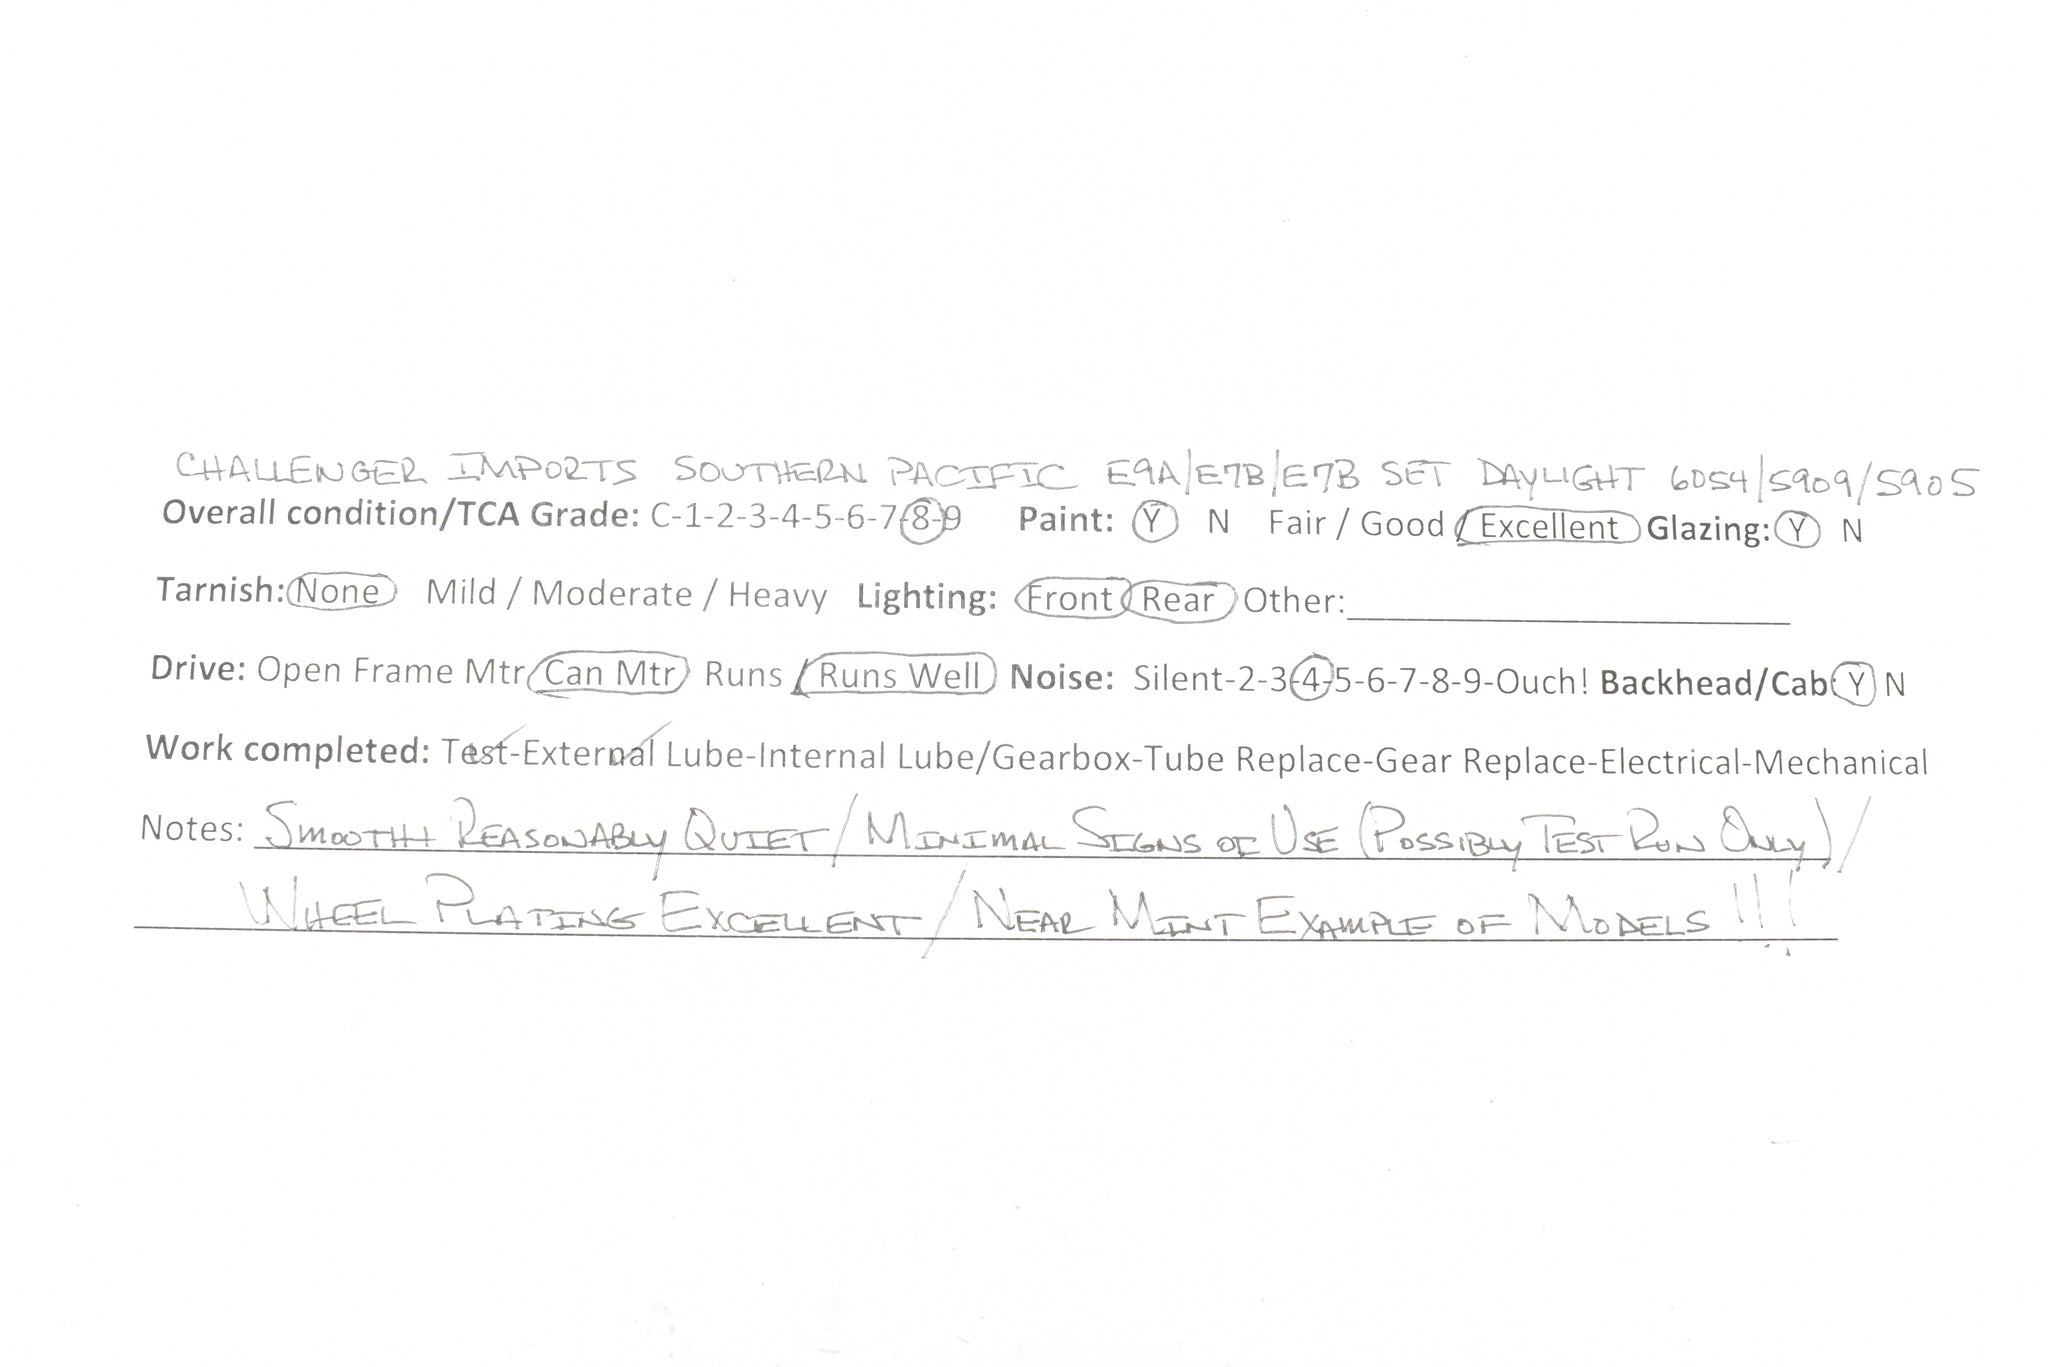 CHALLENGER IMPORTS SOUTHERN PACIFIC E9A/E7B/E7B SET DAYLIGHT 6054/5909/5905
Overall condition/TCA Grade: C-1-2-3-4-5-6-7-8-9 Paint: Y N Fair / Good / Excellent Glazing: Y N
Tarnish: None Mild / Moderate / Heavy Lighting: Front Rear Other:
Drive: Open Frame Mtr Can Mtr Runs / Runs Well Noise: Silent-2-3-4-5-6-7-8-9-Ouch! Backhead/Cab Y N
Work completed: Test-External Lube-Internal Lube/Gearbox-Tube Replace-Gear Replace-Electrical-Mechanical
Notes: SMOOTH REASONABLY QUIET / MINIMAL SIGNS OF USE (POSSIBLY TEST RUN ONLY) /
WHEEL PLATING EXCELLENT / NEAR MINT EXAMPLE OF MODELS!!!